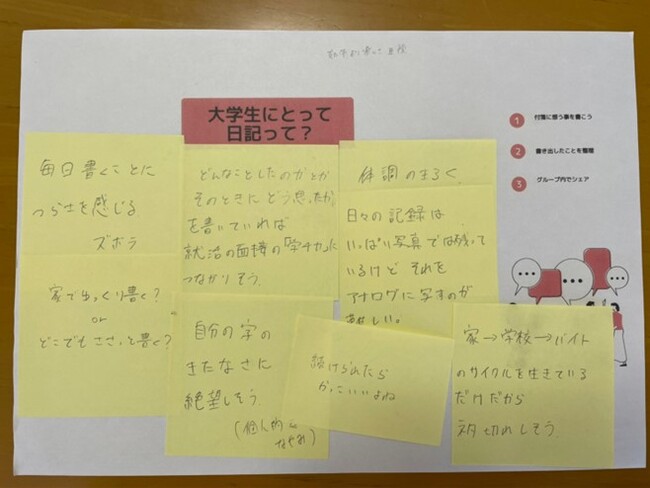 大学生にとって
日記って？
1 付箋に想う事を書こう
2 書き出したことを整理
3 グループ内でシェア
毎日書くことに
つらさを感じる
ズボラ
どんなことしたのかとか
そのときにどう思ったか
を書いていれば
就活の面接の「学チカ」に
つながりそう.
体調の
日々の記録は
いっぱい写真では残って
いるけど それを
アナログに写すのが
難しい。
家でゆっくり書く?
or
どこでもささっと書く?
自分の字の
きたなさに
絶望しそう.
(個人的な
続けられたら
かっこいいよね
家→学校→バイト
のサイクルを生きている
だけだから
ネタ切れしそう.